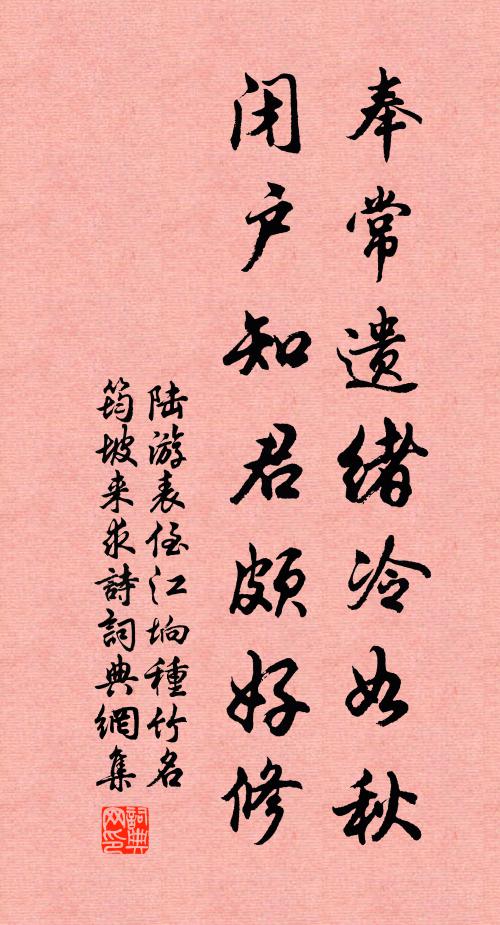 奉常遗绪冷如秋
闭户知君颇好修
陆游表侄江坰種竹名
筠坡来求詩詞典網集
詞典网印